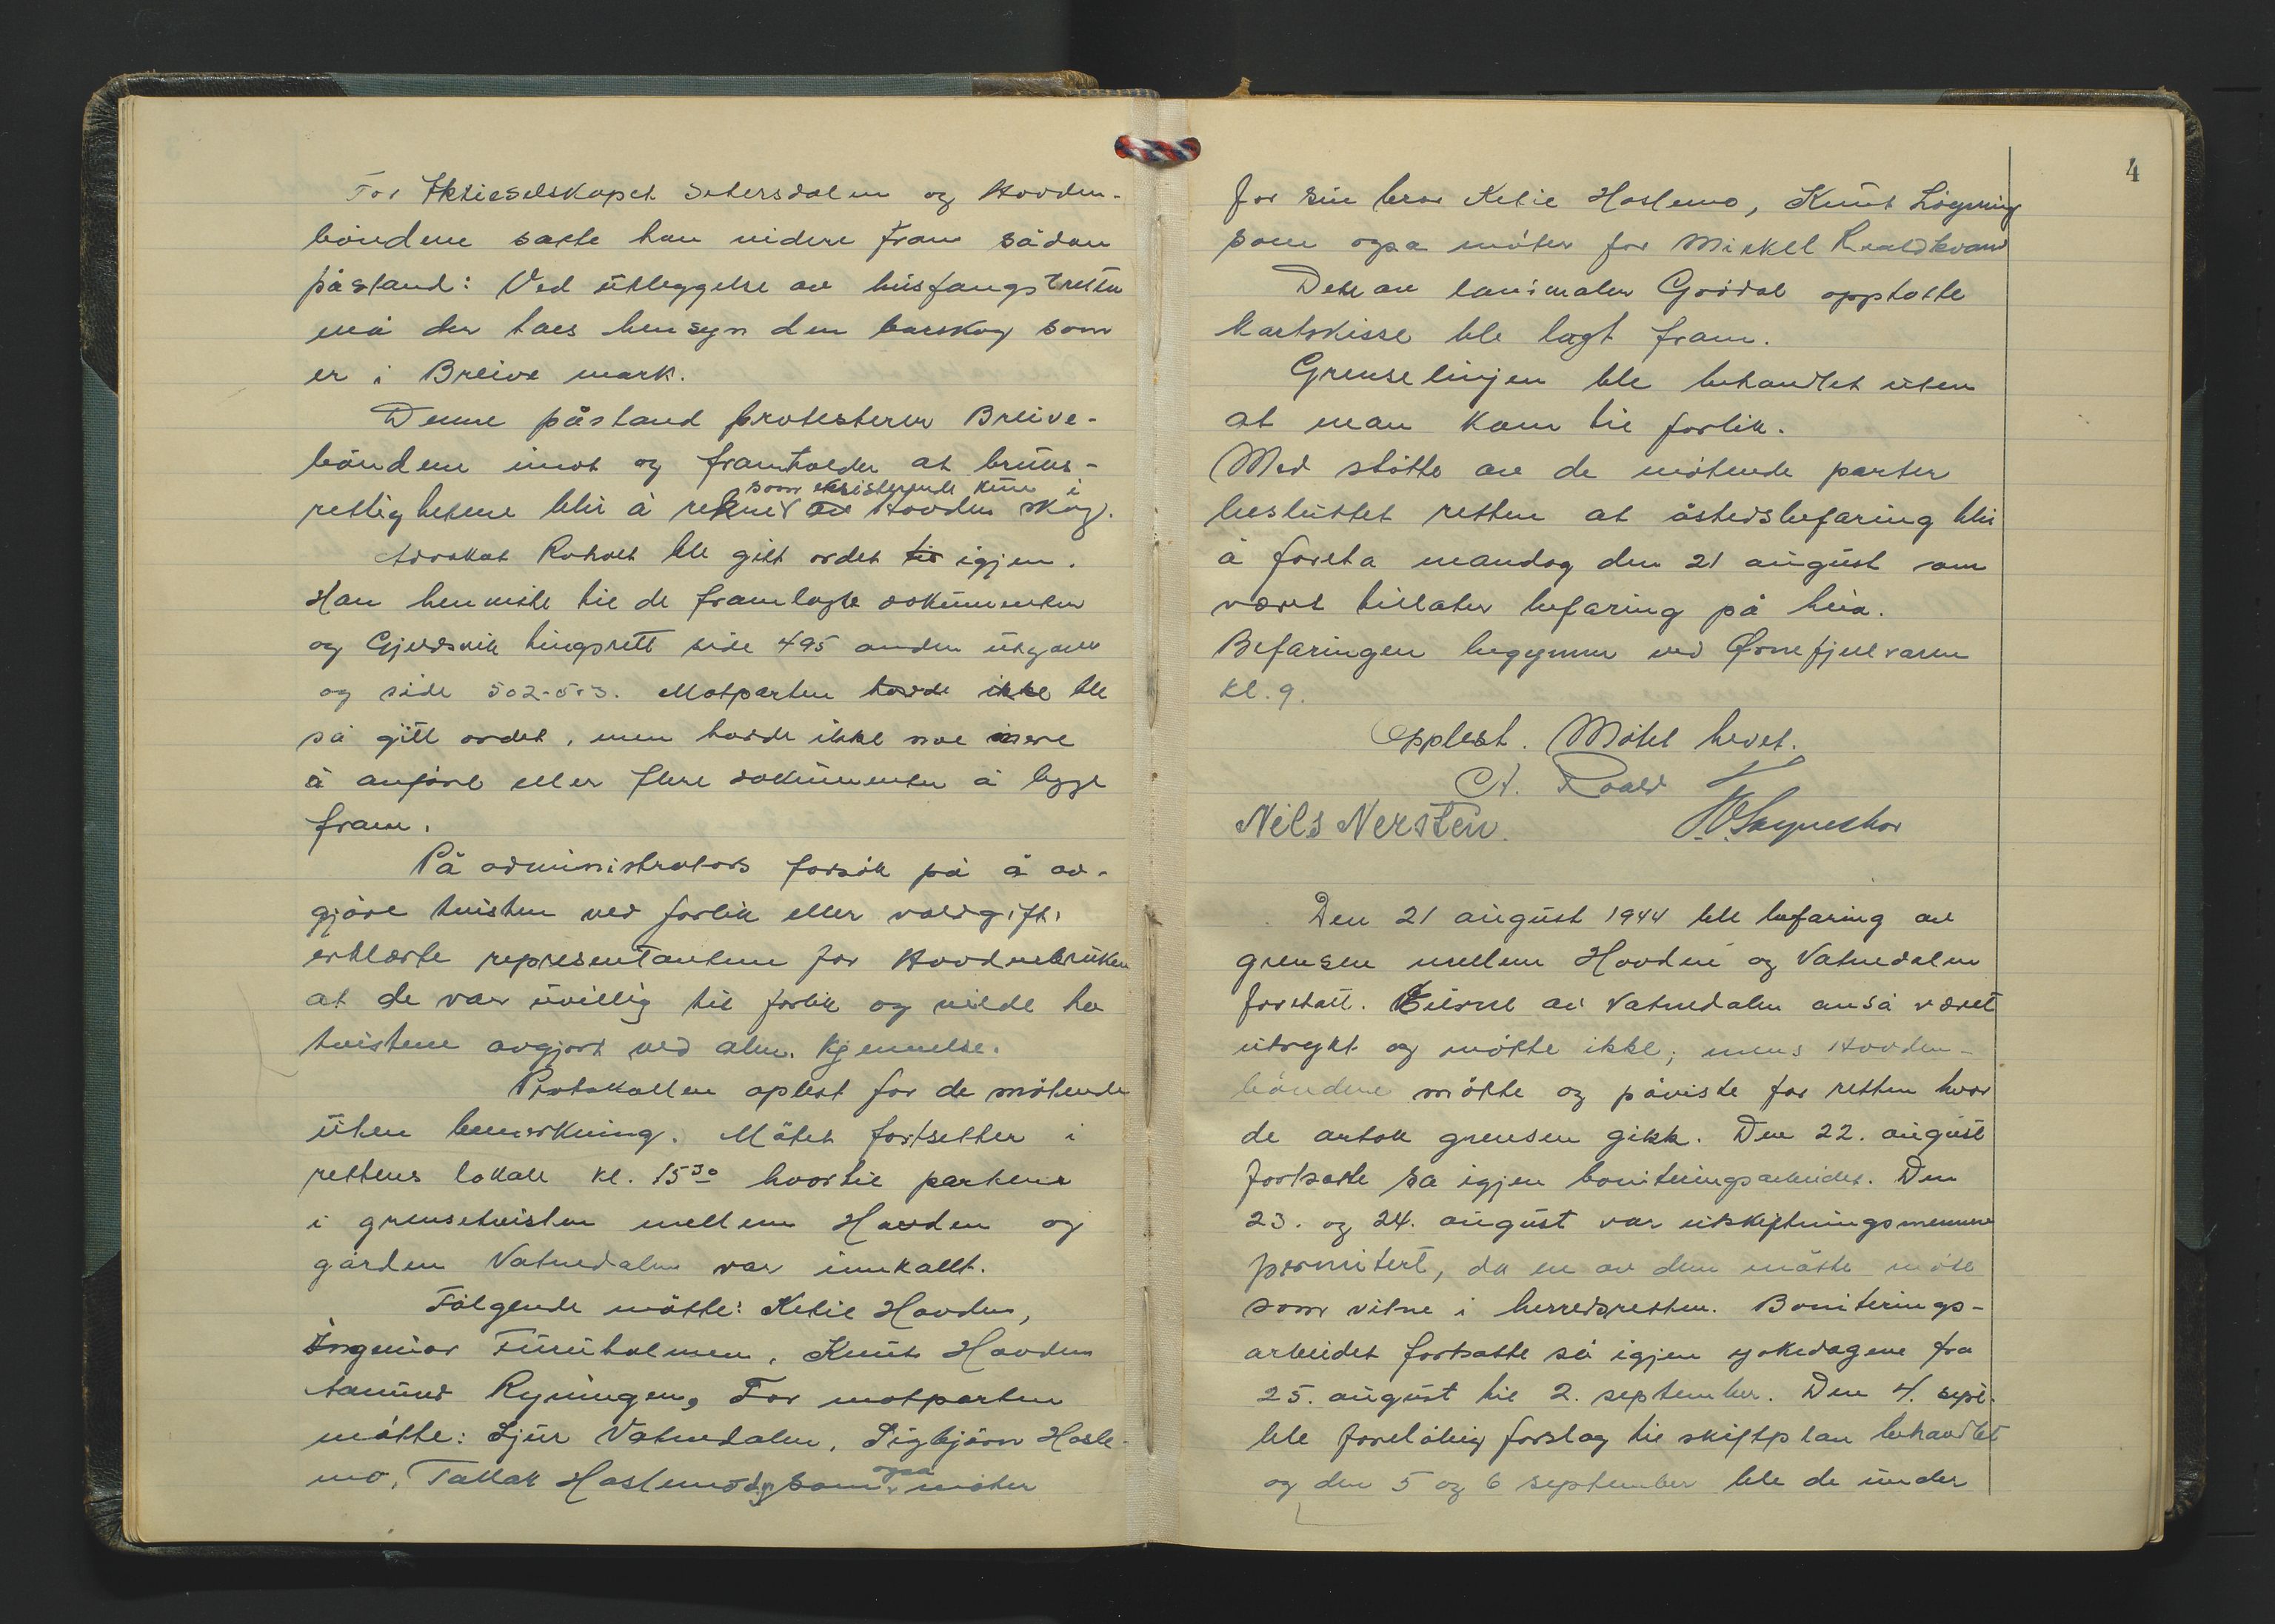 For Aktieselskapet Setersdalen og Hovden-
böndene satte han videre fram sådan
påstand: Ved utleggelse av husfangstretten
må der taes hensyn den barskog som
er i Breive mark.
Denne påstand protesterer Breive-
böndene imot og framholder at bruks-
rettighetene blir å rekne
som eksisterende kun i
Hovden skog.
Advokat Roholt ble gitt ordet til igjen.
Han henviste til de framlagte dokumenter
og Gjelsvik tingsrett side 495 anden utgave
og side 502-503. Motparten hadde ikke ble
så gitt ordet, men hadde ikke noe mere
å anføre eller flere dokumenter å legge
fram.
På administrators forsök på å av-
gjöre tvisten ved forlik eller voldgift,
erklærte representantene for Hovdenbruken
at de var uvillig til forlik og vilde ha
tvistene avgjort ved alm. kjennelse.
Protokollen oplest for de mötende
uten bemerkning. Mötet fortsetter i
rettens lokale kl. 15³⁰ hvortil partene
i grensetvisten mellem Hovden og
gården Vatnedalen var innkallt.
Fölgende mötte: Ketil Hovden,
Ingeniør Furuholmen, Knut Hovden
Aamund Ryningen, For motparten
mötte: Sjur Vatnedalen, Sigbjörn Hasle-
mo, Tallak Haslemo som også möter
4
for sin bror Ketil Haslemo, Knut Lögning
som også möter for Mikkel
Dete av landmåler Grödal opptatte
kartskisse ble lagt fram.
Grenselinjen ble behandlet uten
at man kom til forlik.
Med stötte av de mötende parter
besluttet retten at åstedsbefaring blir
å foreta mandag den 21 august om
været tillater befaring på heia.
Befaringen begynner ved Ørnefjellvaren
kl. 9.
Opplest. Mötet hevet.
A. Roald
Nils Nersten.
Den 21 august 1944 ble befaring av
grensen mellem Hovden og Vatnedalen
foretatt. Eierne av Vatnedalen anså været
utrykt og mötte ikke; mens Hovden-
böndene mötte og påviste for retten hvor
de antok grensen gikk. Den 22. august
fortsatte så igjen boniteringsarbeidet. Den
23. og 24. august var utskiftningsmennene
permitert, da en av dem måtte möte
som vitne i herredsretten. Boniterings-
arbeidet fortsatte så igjen yrkedagene fra
25. august til 2. september. Den 4. sept.
ble foreløbig forslag til skiftplan behandlet
og den 5 og 6 september ble de under